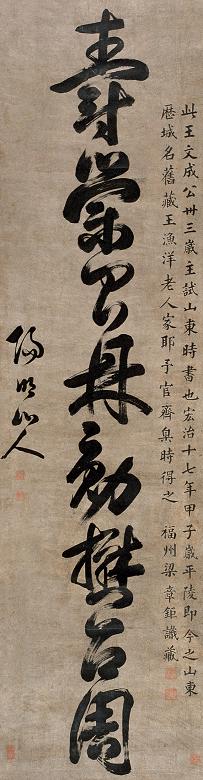 此王文成公卅三歲主試山東時書也宏治十七年甲子歲平陵即今之山東
歷城名舊藏王漁洋老人家耶予官齊臬時得之 福州梁章鉅識藏
壽榮 丹勛懋召周
陽明山人